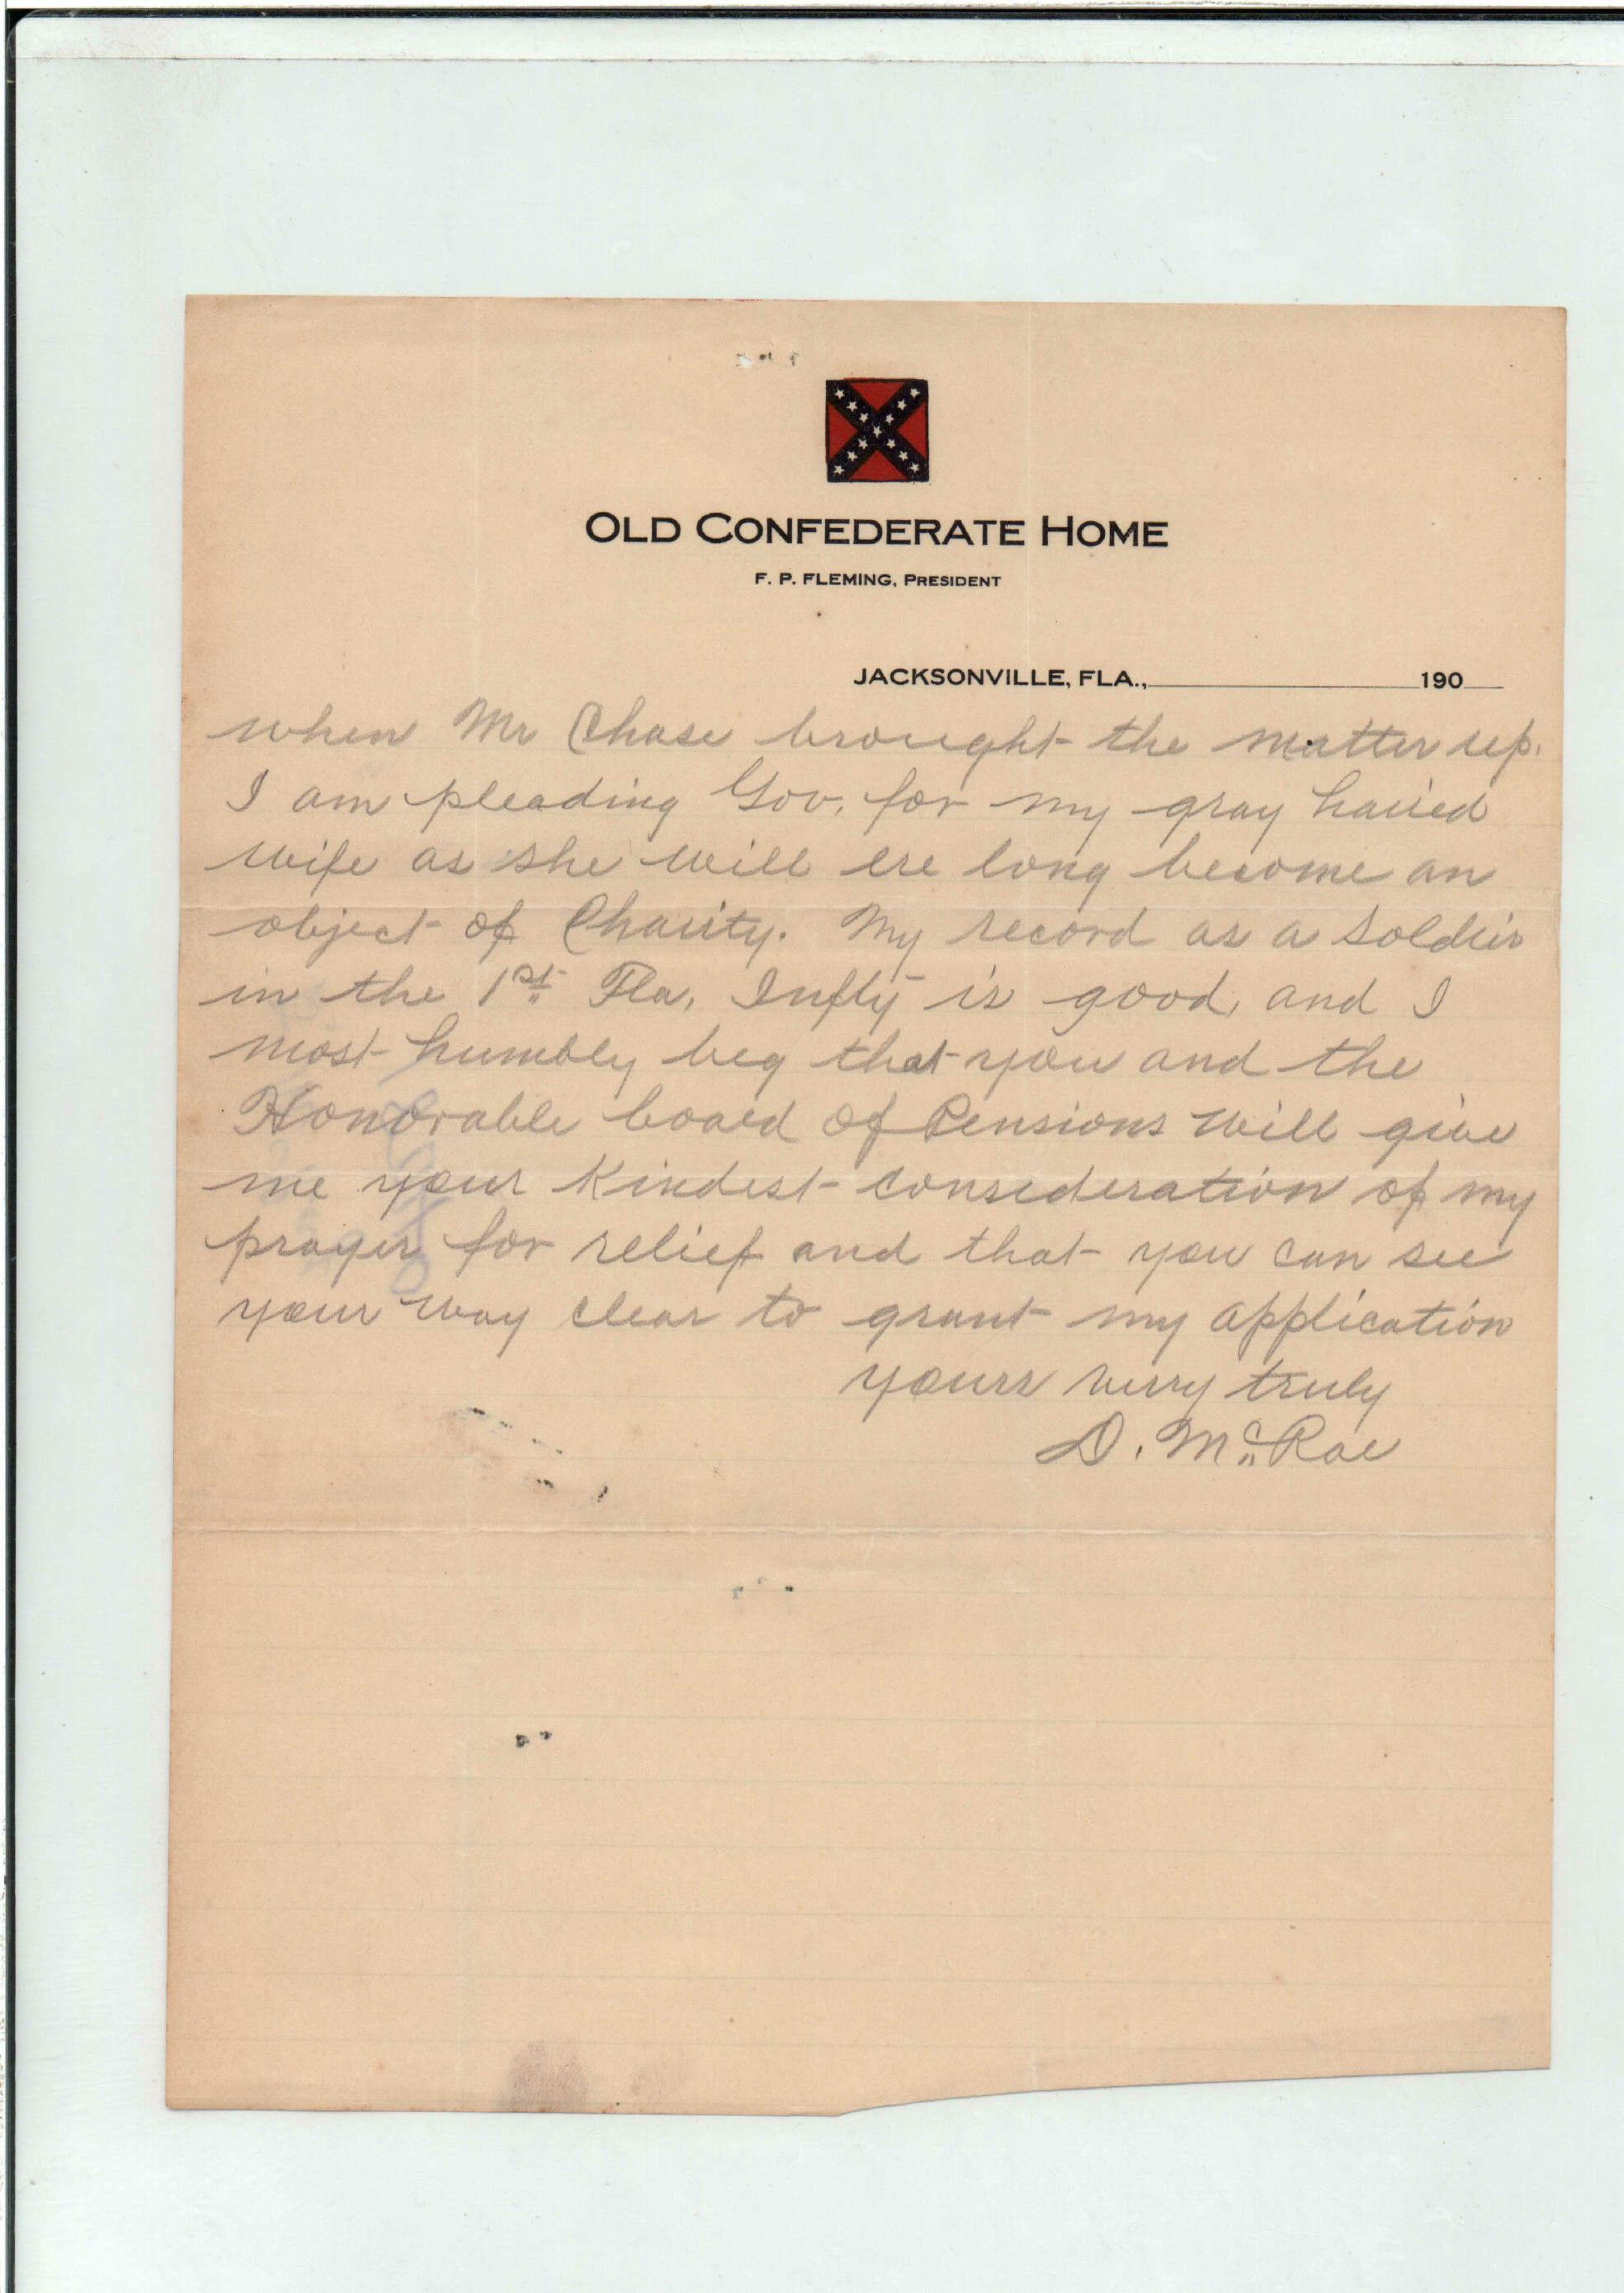 OLD CONFEDERATE HOME
F. P. FLEMING, PRESIDENT
JACKSONVILLE, FLA., 190
when Mr Chase brought the matter up.
I am pleading Gov. for my gray haired
wife as she will ere long become an
object of Charity. My record as a soldier
in the 1st Fla, Infty is good, and I
most humbly beg that you and the
Honorable board of Pensions will give
me your Kindest consideration of my
prayer for relief and that you can see
your way clear to grant my application
yours very truly
D. McRae